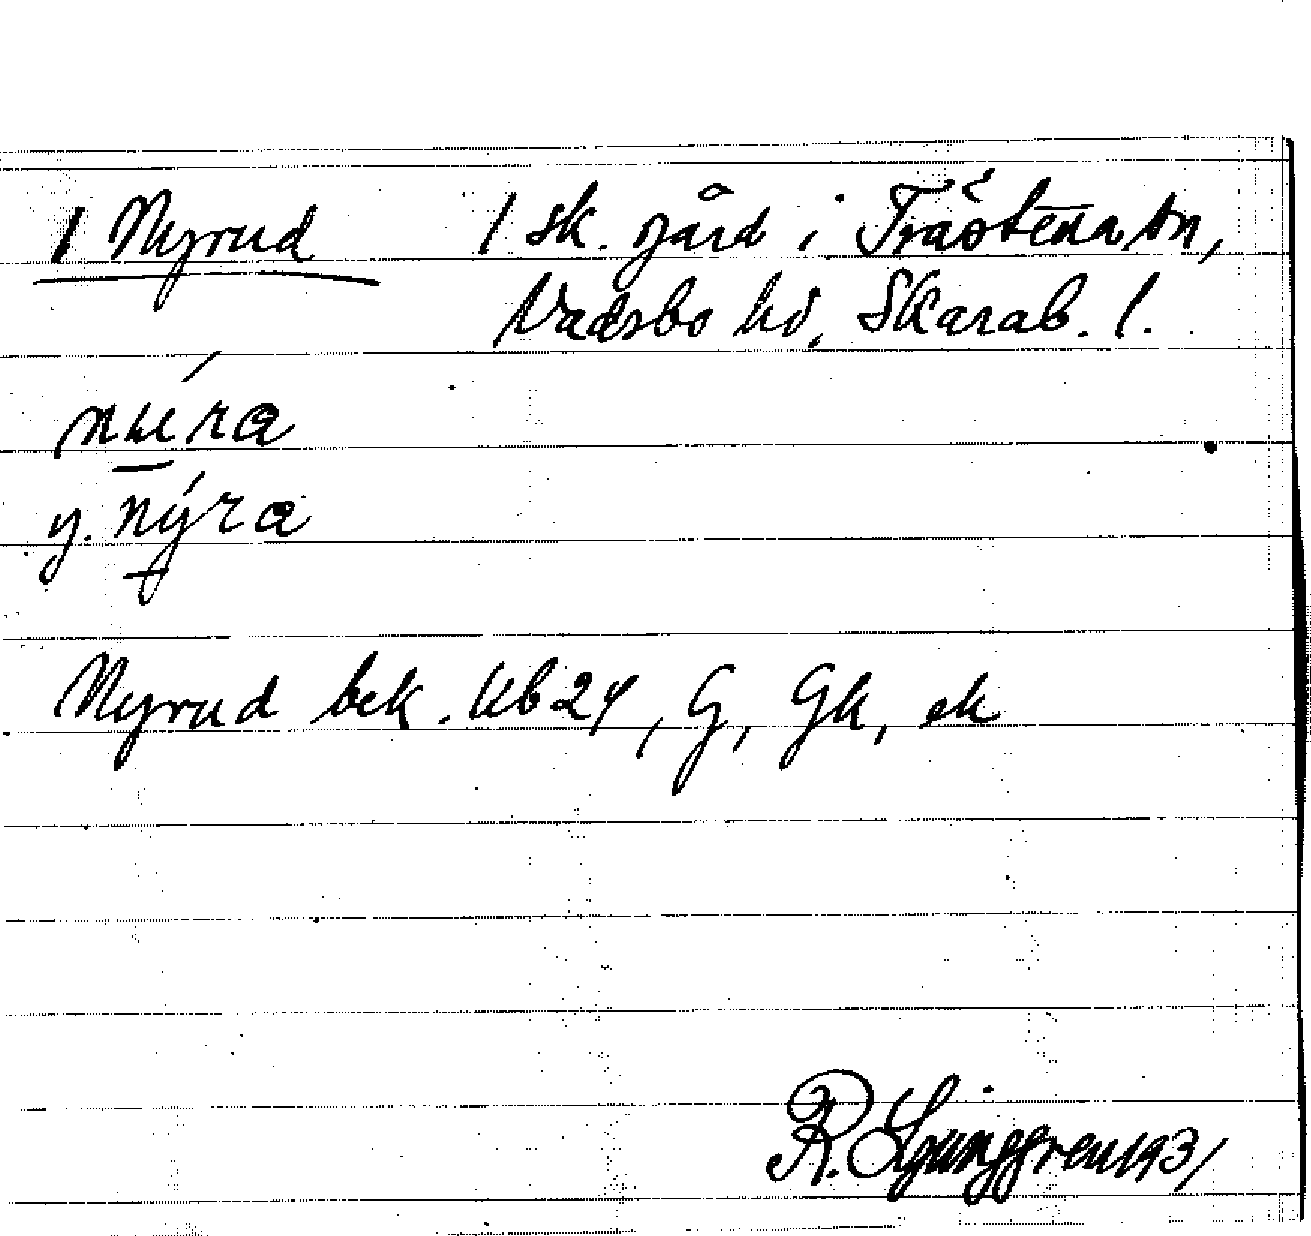 1 Nyrud 1 sk. gård i Trästena sn,
Vadsbo hd, Skarab. l.
y. nýra
Nyrud bek. kb 24, G, Gk, ek
R. Ljunggren 1931